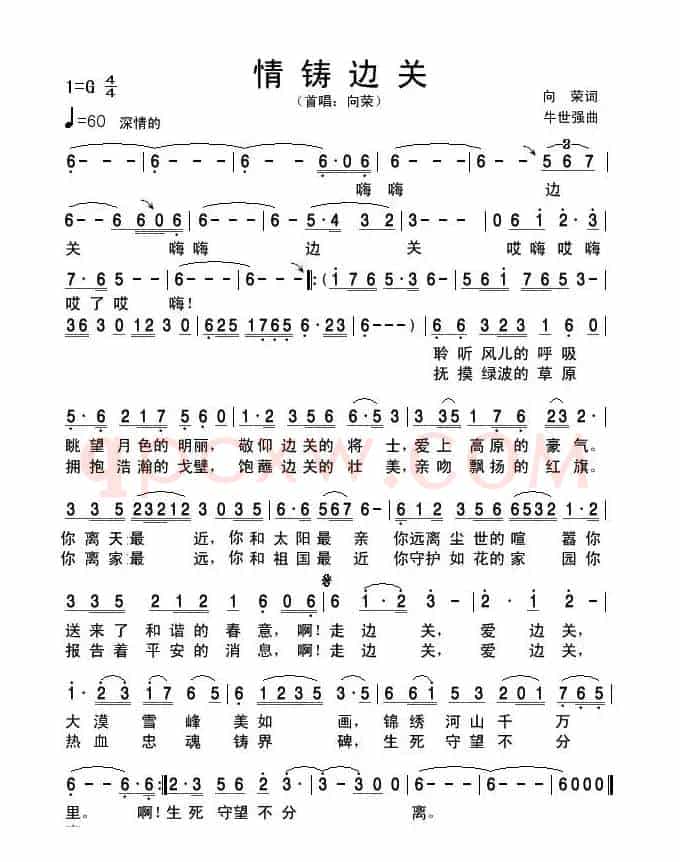 情铸边关
1=G 4/4
（首唱：向荣）
向 荣词
♩=60 深情的
牛世强曲
6 - - | 6 - - - | 6 - - - | 6 - - 6·06 | 6 - - - | 6 - - 6 - - 5 6 7 |
嗨 嗨 边
6 - - 6 606 | 6 - - - | 6 - - 6 | 5·4 3 2 | 3 - - - | 06 1 2·3 |
关 嗨嗨 边 关 哎嗨哎嗨
7·6 5 - - | 6 - - - | 6 - - - |:(1 7 6 5·3 6 - | 5 6 1 7 6 5 | 3 - - - |
哎了哎 嗨！
36 30 1230 | 625 1765 6·23 | 6 - - - ) | 6 6 323 1 6 0 |
聆 听 风儿的 呼 吸
抚 摸 绿波的 草 原
5·6 217 560 | 1·2 356 6·53 | 3 35 176 23 2· |
眺望月色的明丽，敬仰边关的将 士，爱上 高原的豪气。
拥抱浩瀚的戈壁，饱蘸边关的壮 美，亲吻 飘扬的红旗。
qpcxw.com
3 35 23212 3·23 | 6·65 567 6· | 3 235 66 6532 | 1·2 |
你离天最 近，你和太阳最 亲 你远离尘世的喧 嚣你
你离家最 远，你和祖国最 近 你守护如花的家 园你
3 35 212 1 606 | 6 1·2 | 2 - - 6 | 2· 1·7 | 3 - - - |
送来了 和谐的 春 意，啊！走边 关， 爱 边关，
报告着 平安的 消 息，啊！走边 关， 爱 边关，
1·23 1765 | 6·2 3 3 - | 6 61 653 2 201 | 7·65 |
大漠 雪峰 美如 画，锦绣河山千 万
热血 忠魂 铸界 碑，生死守望不 分
6 - - 6·6 :| 2·3 562 2·3 | 5 - - - | 6 - - - | 6 - - - | 6000 ‖
里。 啊！生死 守望不分 离。